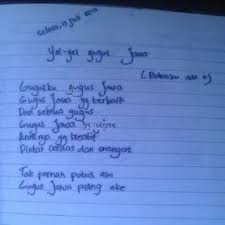 selasa, 17 juli 2012
Yel-yel gugus Jawa
(Balonku ada 5)
Gugusku gugus Jawa
Gugus Jawa yg terbaik
Dari semua gugus
Gugus Jawa
Anaknya yg kreatif
Pintar cerdas dan
Tak pernah putus asa
Gugus Jawa paling oke